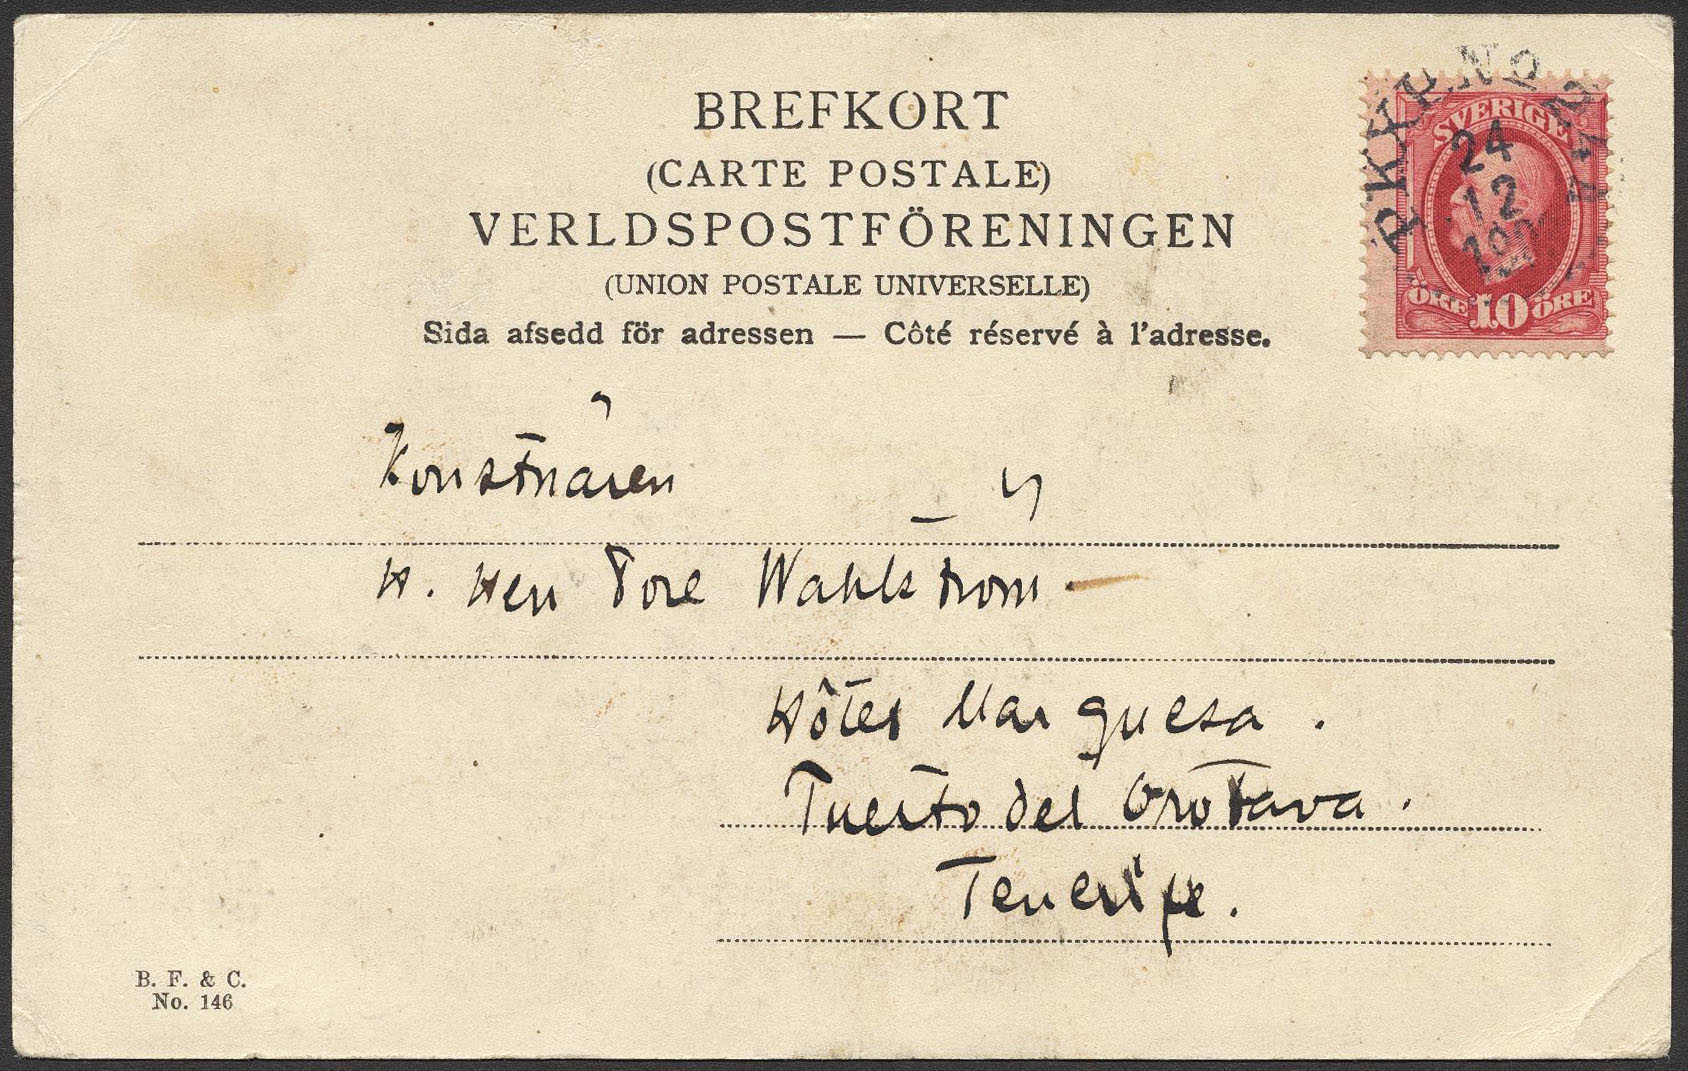 BREFKORT
(CARTE POSTALE)
VERLDSPOSTFÖRENINGEN
(UNION POSTALE UNIVERSELLE)
Sida afsedd för adressen — Côté réservé à l'adresse.
SVERIGE
24
12
ÖRE 10 ÖRE
Konstnären
H. Herr Tore Wahlström
Hôtel Marquesa.
Puerto del Orotava.
Tenerife.
B. F. & C.
No. 146